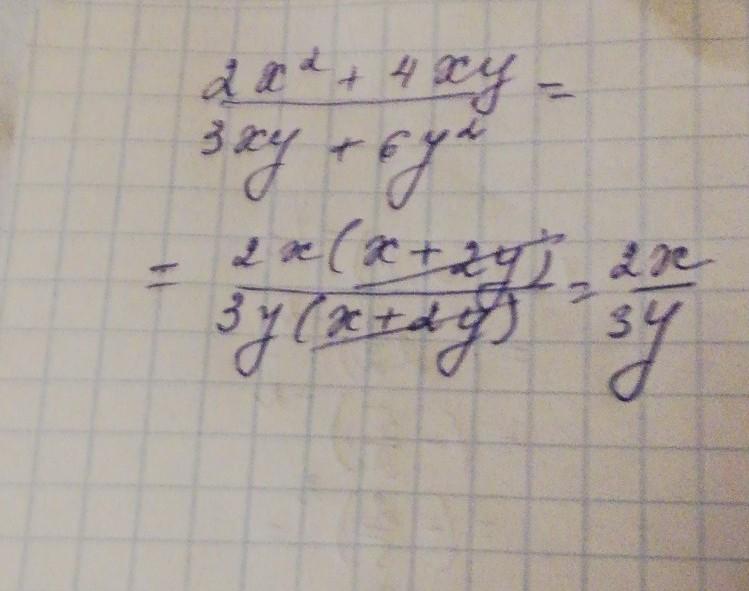 2x² + 4xy =
3xy + 6y²
= 2x(x+2y) = 2x
3y(x+2y) 3y